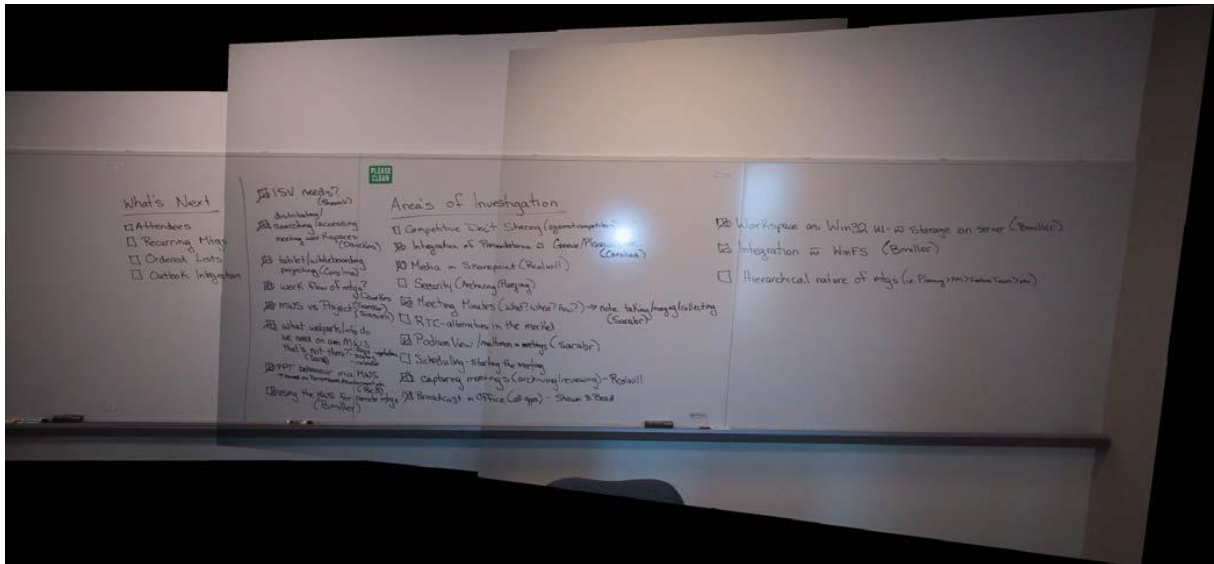 PLEASE
CLEAN
What's Next
☐ Attendees
☐ Recurring Mtgs
☐ Ordered Lists
☐ Outlook Integration
☑ ISV needs?
(Shawnv)
distributing/
☑ searching/accessing
meeting workspaces
☑ tablet/whiteboarding
projecting (Carolina)
☑ work flow of mtgs?
☑ MWS vs Project
☑ what webparts/info do
we need on our MWS
that's not there?
☑ PPT behaviour in a MWS
using the MWS for remote mtgs
(Bmiller)
Area's of Investigation
☐ Competitive Doc't Sharing (against competitors)
☑ Integration of
(Carolina)
☑ Media in Sharepoint (Realwill)
☐ Security (Archiving/Purging)
☑ Meeting Minutes (What? When? How?) → note taking/merging/collecting
(Sarabr)
☐ RTC-alternatives in the market
☑ Podium View / multimon meetings (Sarabr)
☐ Scheduling - starting the meeting
☑ capturing meetings (archiving/reviewing) - Realwill
☑ Broadcast in Office (all apps) - Shawn & Brad
☑ Workspace as Win32 UI - storage on server (Bmiller)
☑ Integration WinFS (Bmiller)
☐ Hierarchical nature of mtgs